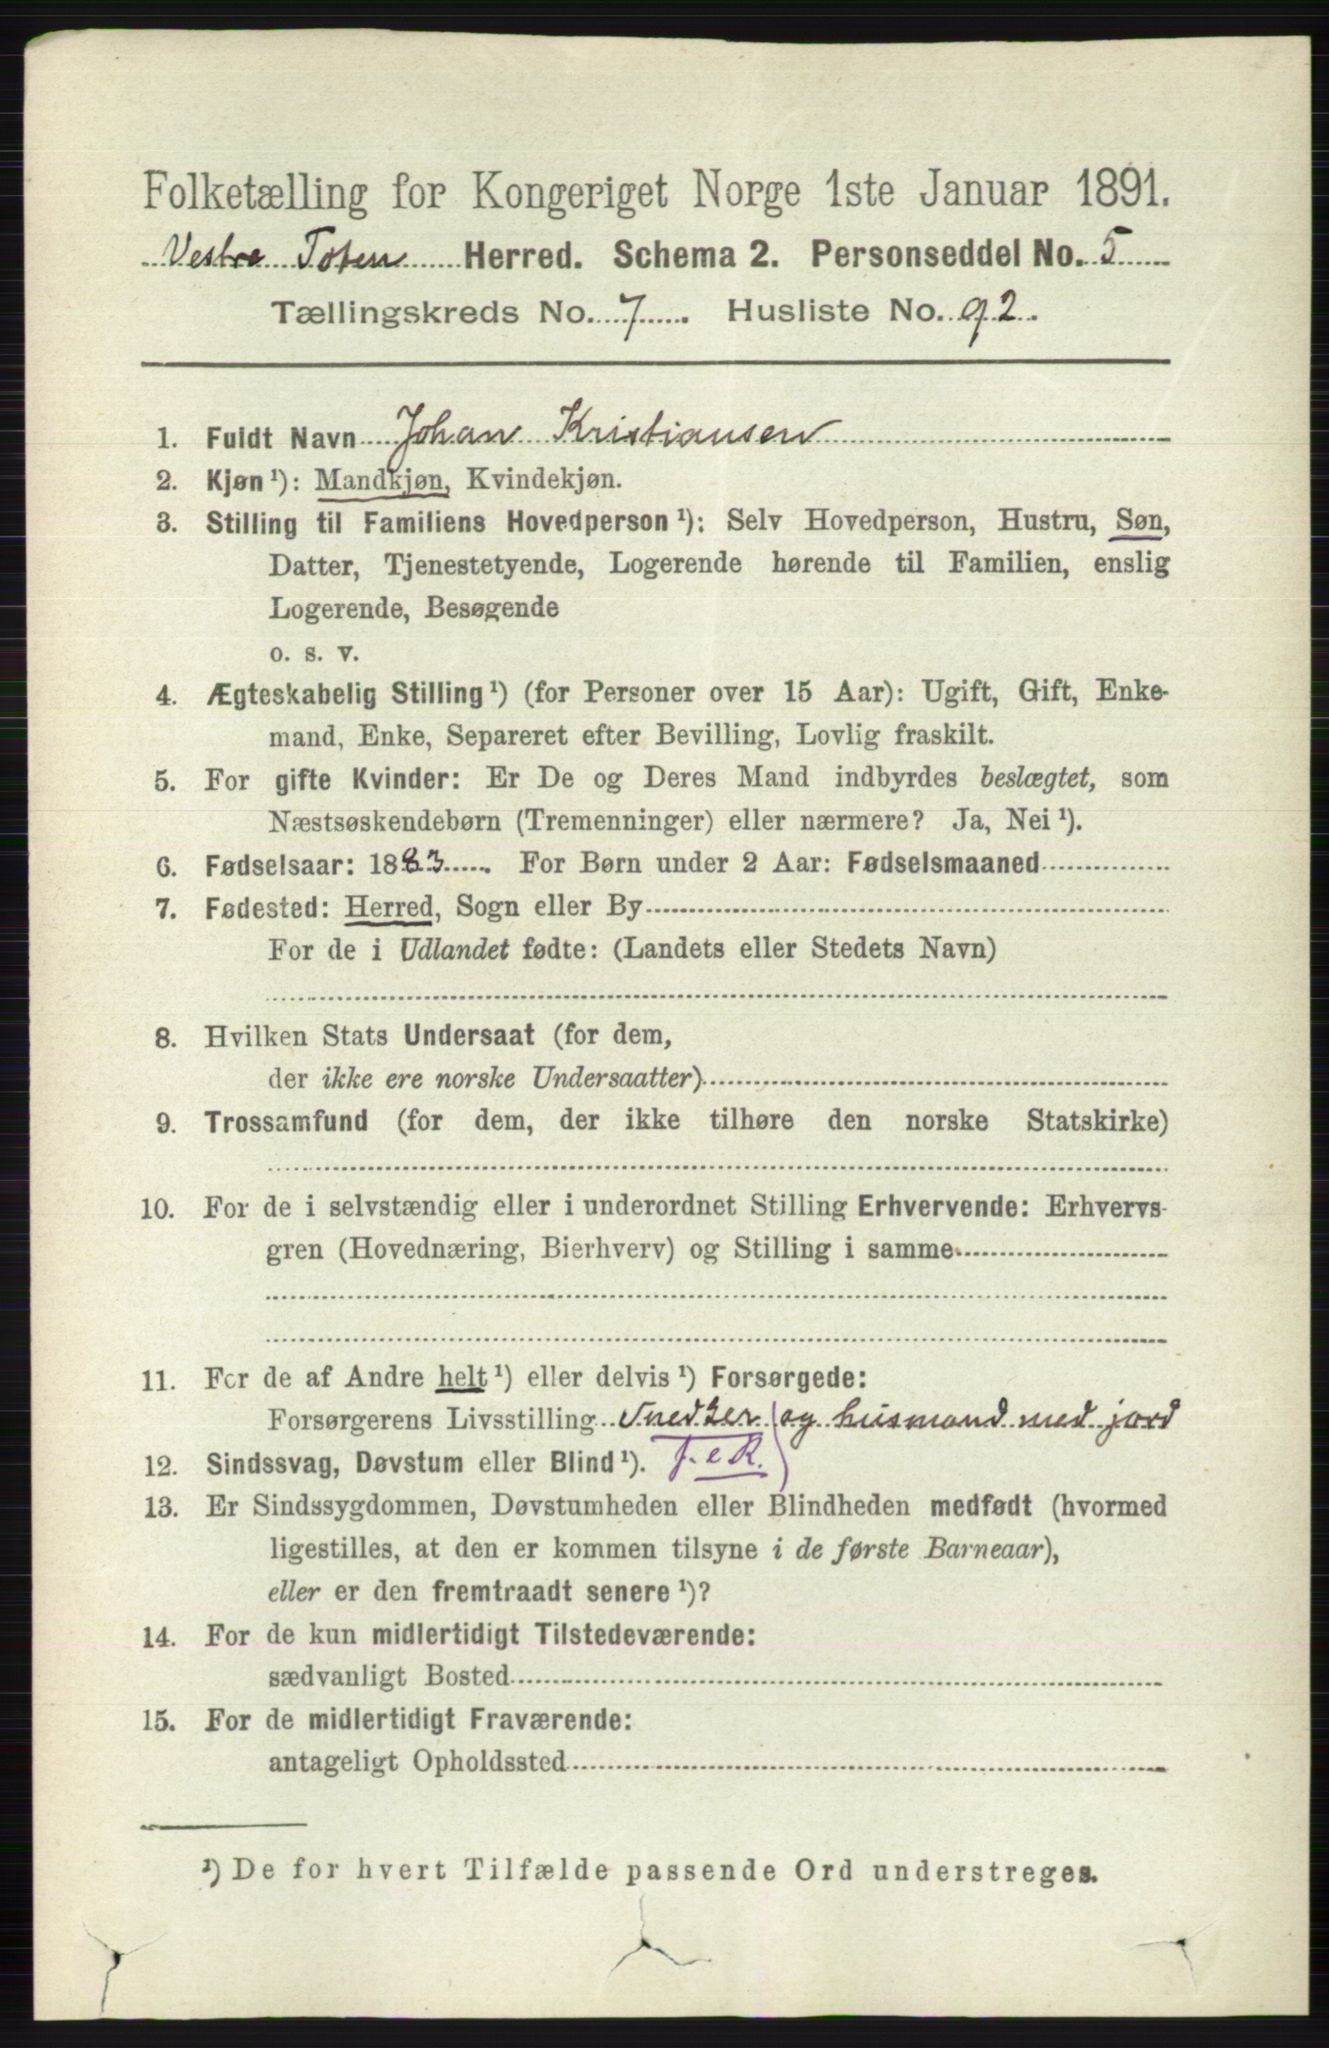 Folketælling for Kongeriget Norge 1ste Januar 1891.
Vestre Toten Herred. Schema 2. Personseddel No. 5
Tællingskreds No. 7. Husliste No. 92.
1. Fuldt Navn Johan Kristiansen
2. Kjøn ¹): Mandkjøn, Kvindekjøn.
3. Stilling til Familiens Hovedperson ¹): Selv Hovedperson, Hustru, Søn,
Datter, Tjenestetyende, Logerende hørende til Familien, enslig
Logerende, Besøgende
o. s. v.
4. Ægteskabelig Stilling ¹) (for Personer over 15 Aar): Ugift, Gift, Enke-
mand, Enke, Separeret efter Bevilling, Lovlig fraskilt.
5. For gifte Kvinder: Er De og Deres Mand indbyrdes beslægtet, som
Næstsøskendebørn (Tremenninger) eller nærmere? Ja, Nei ¹).
6. Fødselsaar: 1883. For Børn under 2 Aar: Fødselsmaaned
7. Fødested: Herred, Sogn eller By
For de i Udlandet fødte: (Landets eller Stedets Navn)
8. Hvilken Stats Undersaat (for dem,
der ikke ere norske Undersaatter)
9. Trossamfund (for dem, der ikke tilhøre den norske Statskirke)
10. For de i selvstændig eller i underordnet Stilling Erhvervende: Erhvervs-
gren (Hovednæring, Bierhverv) og Stilling i samme
11. For de af Andre helt ¹) eller delvis ¹) Forsørgede:
Forsørgerens Livsstilling Snedker og husmand med jord
12. Sindssvag, Døvstum eller Blind ¹). F. e R.
13. Er Sindssygdommen, Døvstumheden eller Blindheden medfødt (hvormed
ligestilles, at den er kommen tilsyne i de første Barneaar),
eller er den fremtraadt senere ¹)?
14. For de kun midlertidigt Tilstedeværende:
sædvanligt Bosted
15. For de midlertidigt Fraværende:
antageligt Opholdssted
¹) De for hvert Tilfælde passende Ord understreges.